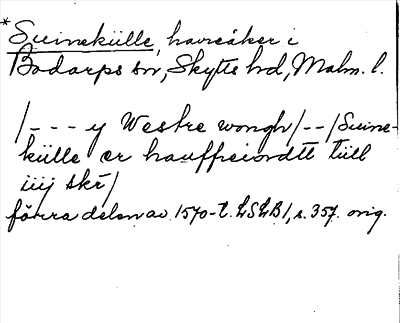 *Suinekülle, havreåker i
Bodarps sn, Skytts hd, Malm. l.
/--- y Westre wongh/--/Suine-
külle er hauffreiordtt tiill
iiij skr/
förra delen av 1570-t. LSLB1, s. 357. orig.